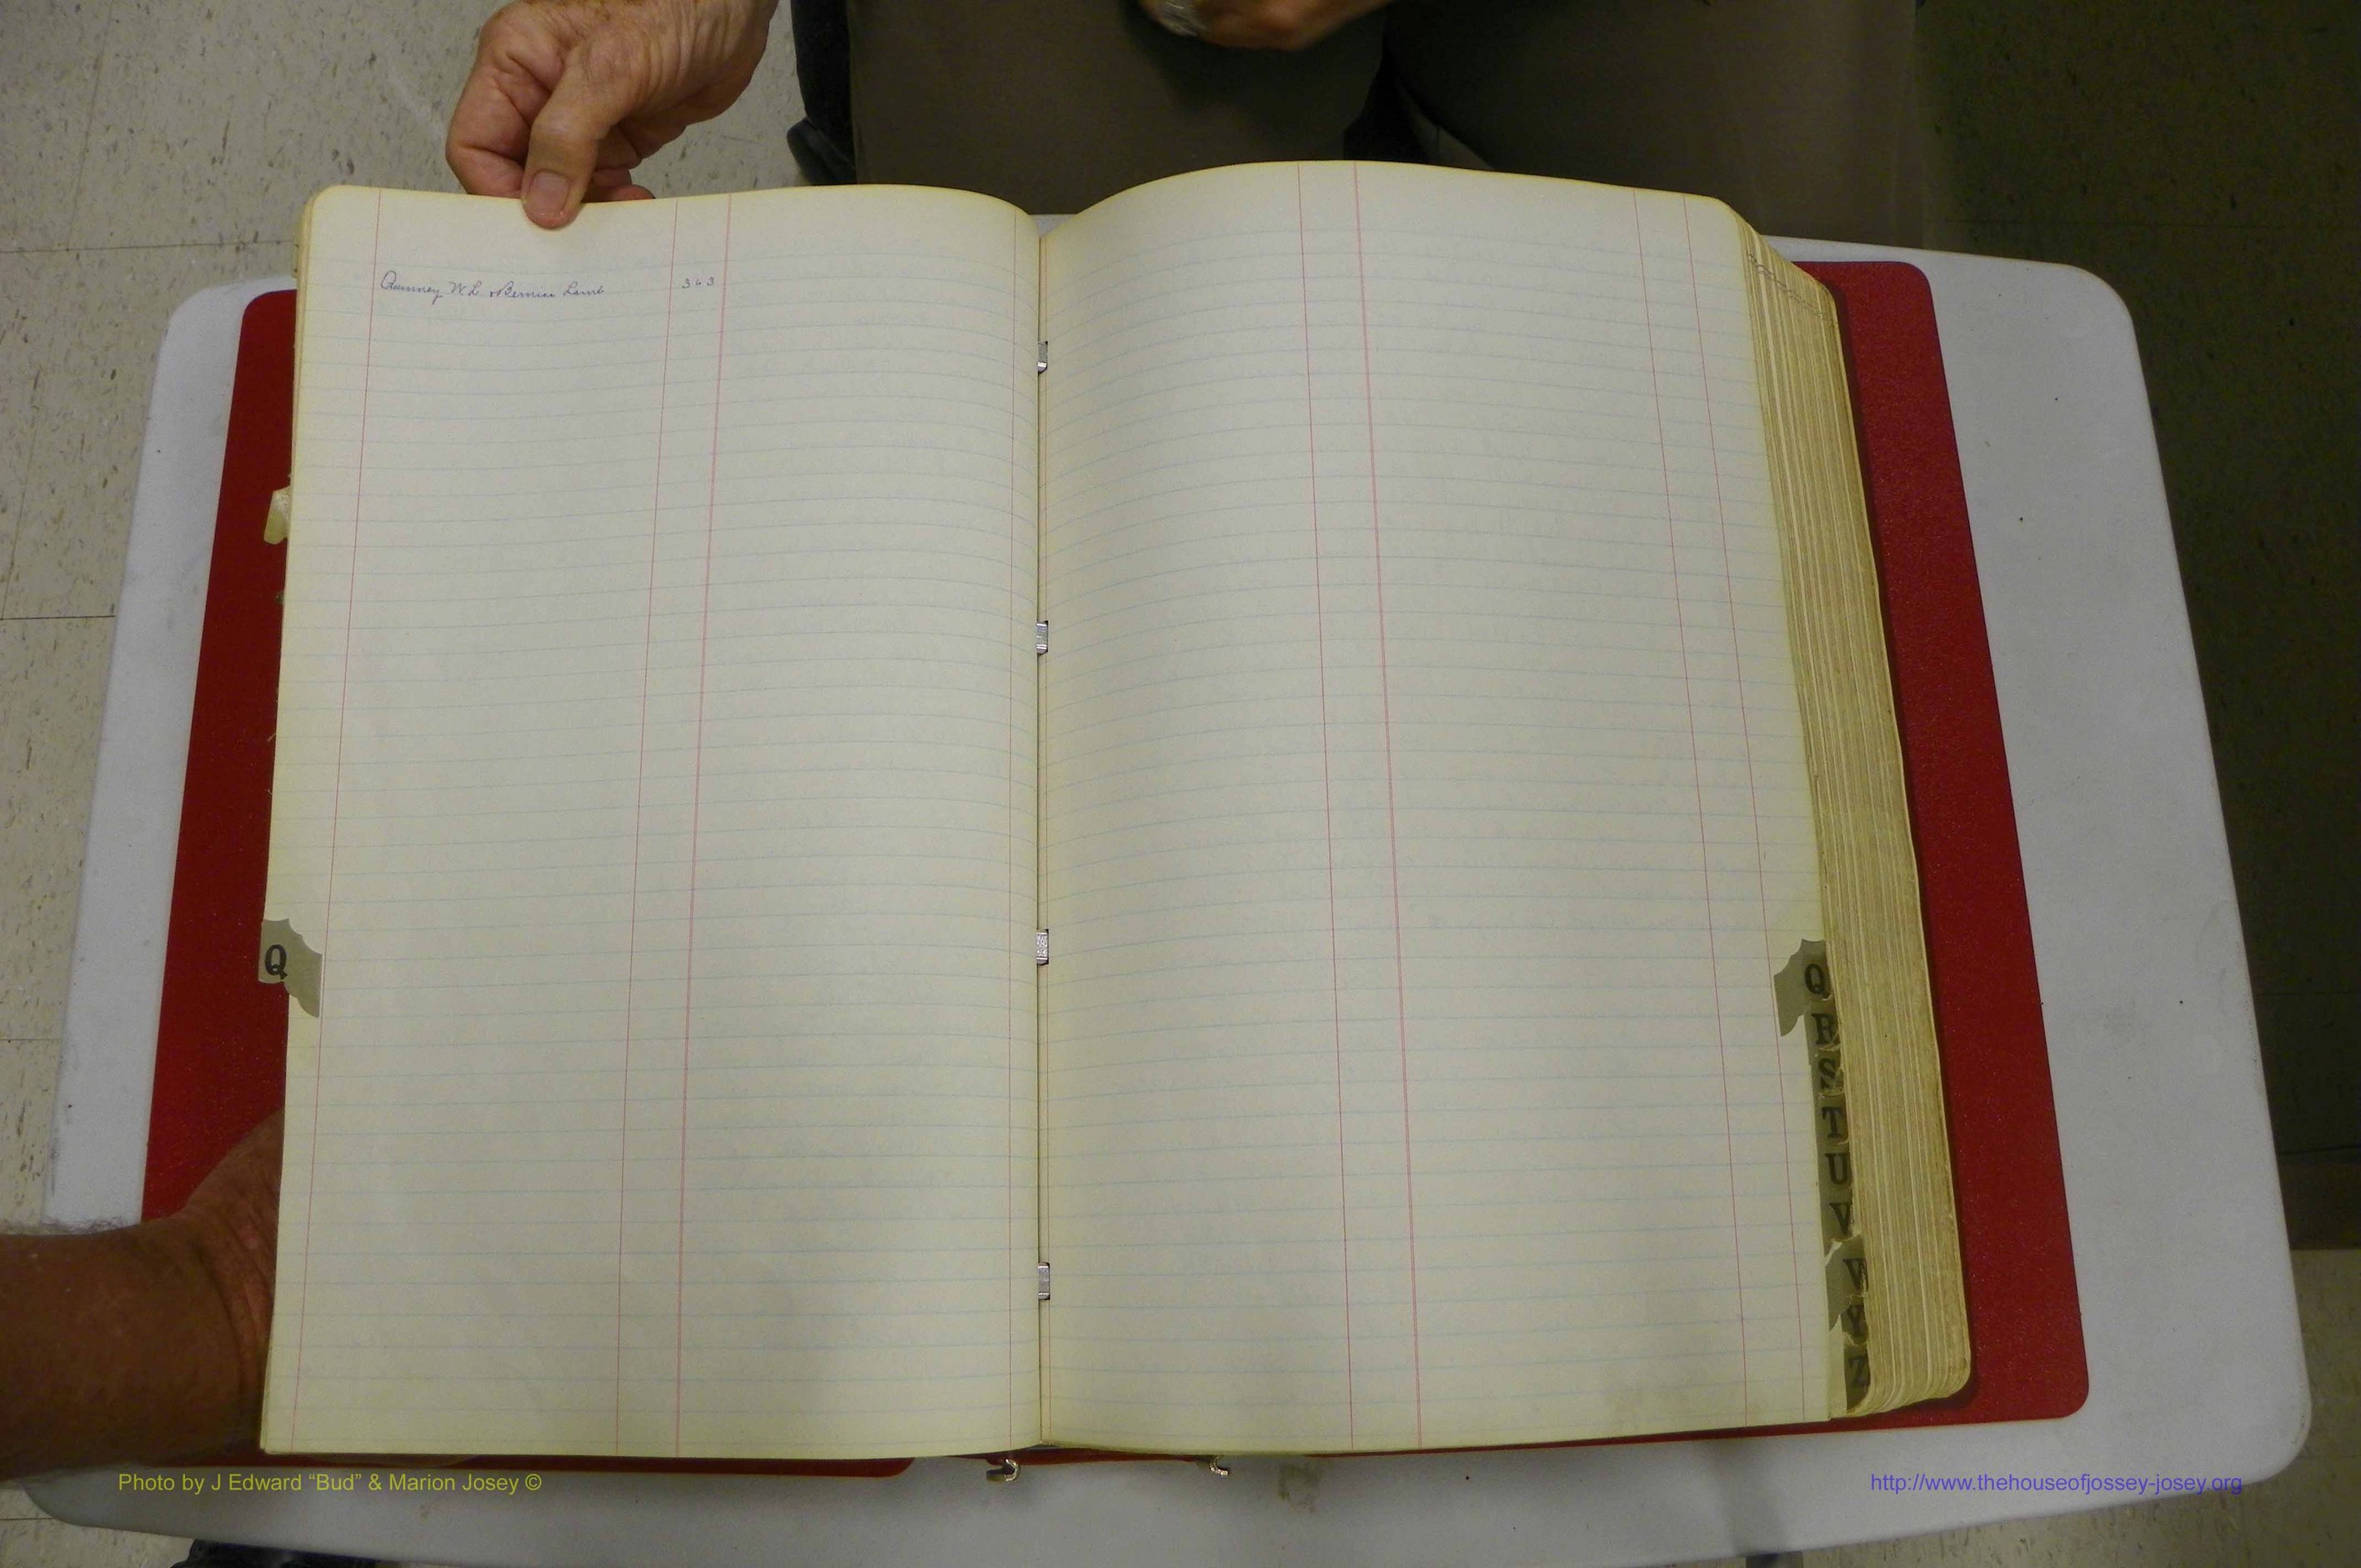 Qunney W.L. & Bernice Lamb 363
Q
Q
R
S
T
U
V
W
Y
Z
Photo by J Edward “Bud” & Marion Josey ©
http://www.thehouseofjossey-josey.org